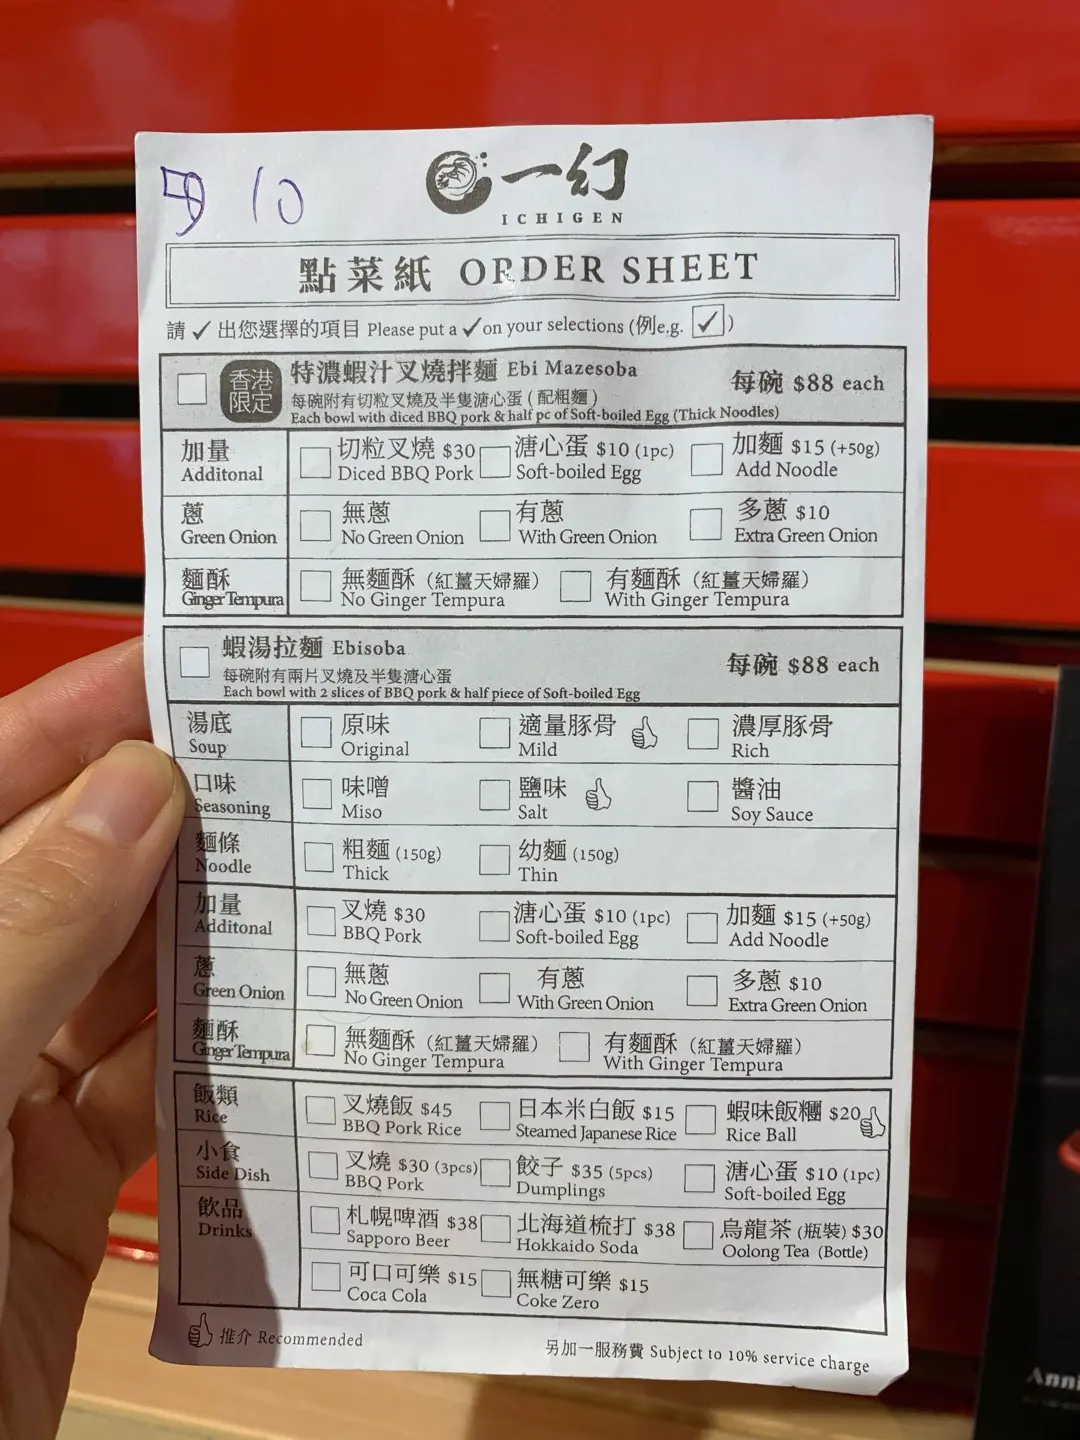 10
一幻
ICHIGEN
點菜紙 ORDER SHEET
請 ✓ 出您選擇的項目 Please put a ✓ on your selections (例e.g. ✓)
香港限定
特濃蝦汁叉燒拌麵 Ebi Mazesoba 每碗 $88 each
每碗附有切粒叉燒及半隻溏心蛋 (配粗麵)
Each bowl with diced BBQ pork & half pc of Soft-boiled Egg (Thick Noodles)
加量 切粒叉燒 $30 溏心蛋 $10 (1pc) 加麵 $15 (+50g)
Additonal Diced BBQ Pork Soft-boiled Egg Add Noodle
蔥 無蔥 有蔥 多蔥 $10
Green Onion No Green Onion With Green Onion Extra Green Onion
麵酥 無麵酥 (紅薑天婦羅) 有麵酥 (紅薑天婦羅)
Ginger Tempura No Ginger Tempura With Ginger Tempura
蝦湯拉麵 Ebisoba 每碗 $88 each
每碗附有兩片叉燒及半隻溏心蛋
Each bowl with 2 slices of BBQ pork & half piece of Soft-boiled Egg
湯底 原味 適量豚骨 濃厚豚骨
Soup Original Mild Rich
口味 味噌 鹽味 醬油
Seasoning Miso Salt Soy Sauce
麵條 粗麵 (150g) 幼麵 (150g)
Noodle Thick Thin
加量 叉燒 $30 溏心蛋 $10 (1pc) 加麵 $15 (+50g)
Additonal BBQ Pork Soft-boiled Egg Add Noodle
蔥 無蔥 有蔥 多蔥 $10
Green Onion No Green Onion With Green Onion Extra Green Onion
麵酥 無麵酥 (紅薑天婦羅) 有麵酥 (紅薑天婦羅)
Ginger Tempura No Ginger Tempura With Ginger Tempura
飯類 叉燒飯 $45 日本米白飯 $15 蝦味飯糰 $20
Rice BBQ Pork Rice Steamed Japanese Rice Rice Ball
小食 叉燒 $30 (3pcs) 餃子 $35 (5pcs) 溏心蛋 $10 (1pc)
Side Dish BBQ Pork Dumplings Soft-boiled Egg
飲品 札幌啤酒 $38 北海道梳打 $38 烏龍茶 (瓶裝) $30
Drinks Sapporo Beer Hokkaido Soda Oolong Tea (Bottle)
可口可樂 $15 無糖可樂 $15
Coca Cola Coke Zero
推介 Recommended 另加一服務費 Subject to 10% service charge
Anni